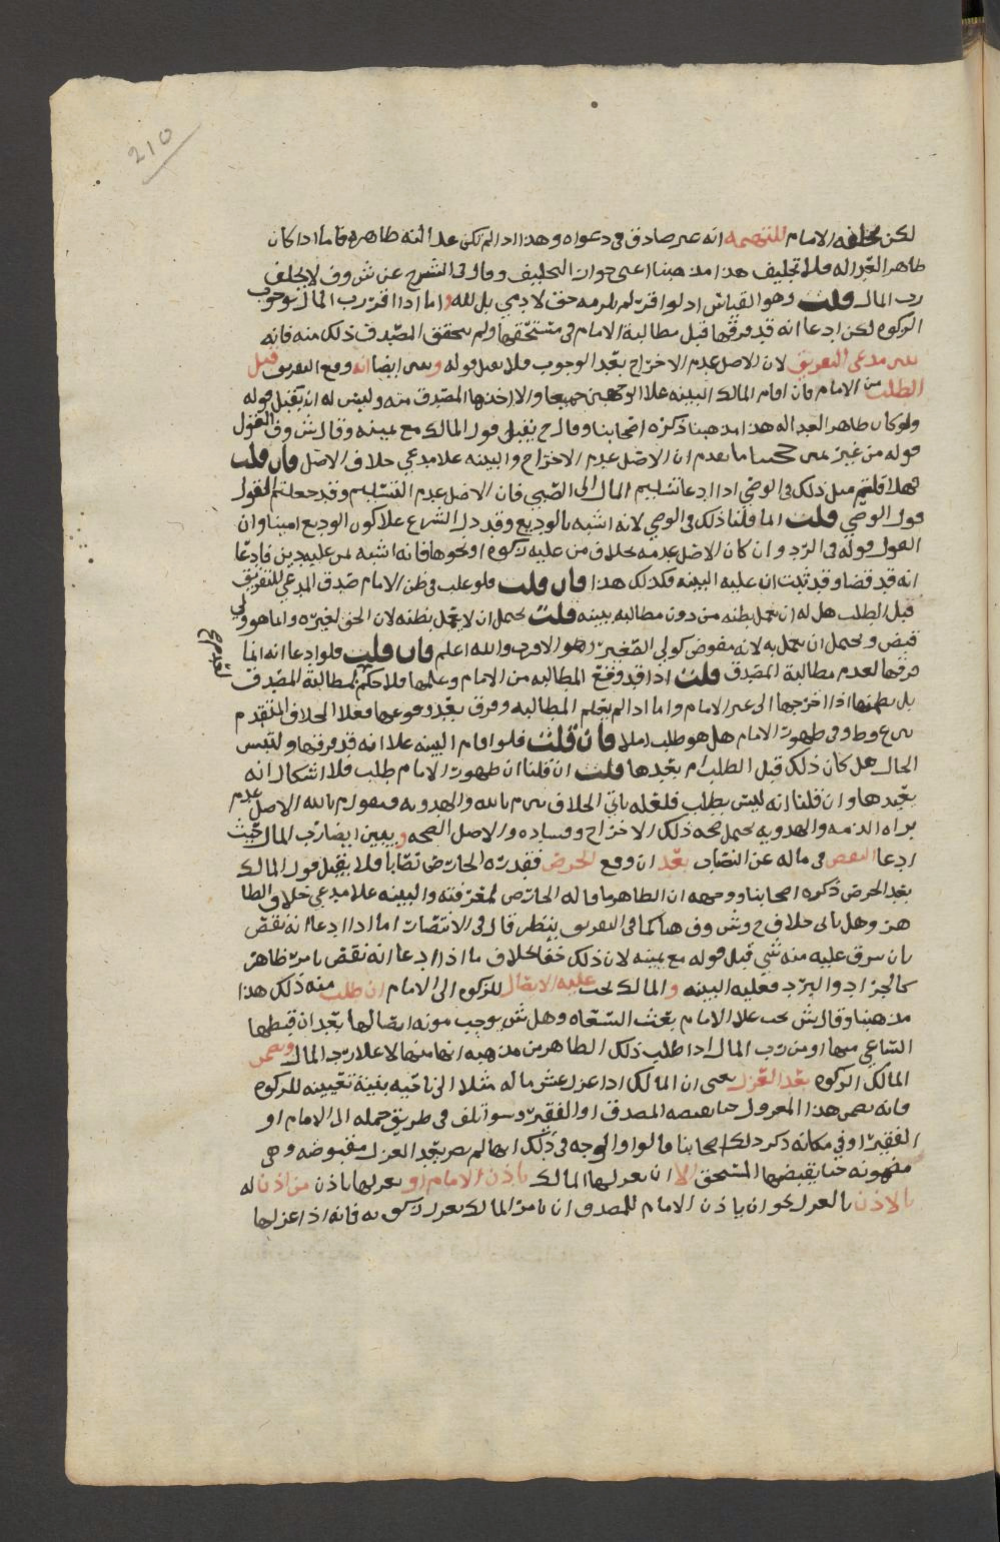 210
لكن يحلفه الامام للتهمة انه غير صادق في دعواه وهذا اذا لم تكن عدالته ظاهرة فاما اذا كان
ظاهر العداله فلا تحليف هذا مذهبنا اعني جواز التحليف وقال في الشرح عن ش وف لا يحلف
رب المال قلت وهو القياس اذ لو اقر لم يلزمه حق لادمي بل لله واما اذا اقر رب المال بوجوب
الزكوه لكن ادعا انه قد فرقها قبل مطالبة الامام في مستحقها ولم يتحقق المصدق ذلك منه فانه
يبين مدعي التفريق لان الاصل عدم الاخراج بعد الوجوب فلا يقبل قوله ويبين ايضا انه وقع التفريق قبل
الطلب من الامام فان اقام المالك البينه على الوجهين جميعا والا اخذها المصدق منه وليس له ان يقبل قوله
ولو كان ظاهر العداله هذا مذهبنا ذكره اصحابنا وقال ح يقبل قول المالك مع يمينه وقال ش وف القول
قوله من غير يمين حجتنا ما تقدم ان الاصل عدم الاخراج والبينه علا مدعي خلاف الاصل فان قلت
فهلا قلتم مثل ذلك في الوصي اذا ادعا تسليم المال الى الصبي فان الاصل عدم التسليم وقد جعلتم القول
قول الوصي قلت انما قلنا ذلك في الوصي لانه اشبه بالوديع وقد دل الشرع علا كون الوديع امينا وان
القول قوله في الرد وان كان الاصل عدمه بخلاف من عليه زكوه او نحوها فانه اشبه بمن عليه دين فادعا
انه قد قضا وقد ثبت ان عليه البينه فكذلك هذا فان قلت فلو غلب في ظن الامام صدق المدعي للتفريق
قبل الطلب هل له ان يعمل بظنه من دون مطالبه ببينه قلت يحتمل ان لا يعمل بظنه لان الحق لغيره وانما هو ولي
قبض ويحتمل ان يعمل به لانه مفوض كولي الصغير وهو الاقرب والله اعلم فان قلت فلو ادعا انه انما
فرقها لعدم مطالبة المصدق قلت اذا قد وقع المطالبه من الامام وعلمها فلا حكم لمطالبة المصدق
بل يضمنها اذا اخرجها الى غير الامام واما اذا لم يعلم المطالبه وفرق بعد وقوعها فعلا الخلاف المتقدم
بين ع وط وفي ظهور الامام هل هو طلب ام لا فان قلت فلو اقام البينه علا انه قد فرقها والتبس
الحال هل كان ذلك قبل الطلب ام بعدها قلت ان قلنا ان ظهور الامام طلب فلا اشكال انه
بعدها وان قلنا انه ليس بطلب فلعله ياتي الخلاف بين م بالله والهدويه فيقول م بالله الاصل عدم
براه الذمه والهدويه يحتمل صحه ذلك الاخراج وفساده والاصل الصحه ويبين ايضا رب المال حيث
ادعا النقص في ماله عن النصاب بعد ان وقع الخرص فقدره الخارص نصابا فلا يقبل قول المالك
بعد الخرص ذكره اصحابنا ووجهه ان الظاهر ما قاله الخارص لمعرفته والبينه علا مدعي خلاف الظا
هر وهل ياتي خلاف ح وش وف هنا كما في التفريق ينظر قال في الانتصار اما اذا ادعا انه نقص
بان سرق عليه منه شي قبل قوله مع يمينه لان ذلك خفا بخلاف ما اذا ادعا انه نقص بامر ظاهر
كالجراد والبرد فعليه البينه والمالك يجب عليه الايصال للزكوه الى الامام ان طلب منه ذلك هذا
مذهبنا وقال ش يجب علا الامام بعث السعاه وهل ش يوجب مونه ايصالها بعد ان قبضها
الساعي منها او من رب المال اذا طلب ذلك الظاهر من مذهبه انها منها لا علا رب المال ويضمن
المالك الزكوه بعد العزل يعني ان المالك اذا عزل عشر ماله مثلا الى ناحيه بنية تعيينه للزكوه
فانه يضمن هذا المعزول حتا يقبضه المصدق او الفقير وسوا تلف في طريق حمله الى الامام او
الفقير او في مكانه ذكر ذلك اصحابنا قالوا والوجه في ذلك انها لم تصر بعد العزل مقبوضه وهي
مضمونه حتا يقبضها المستحق الا ان يعزلها المالك باذن الامام او يعزلها باذن من اذن له
بالاذن بالعزل نحو ان ياذن الامام للمصدق ان يامر المالك بعزل زكوته فانه اذا عزلها